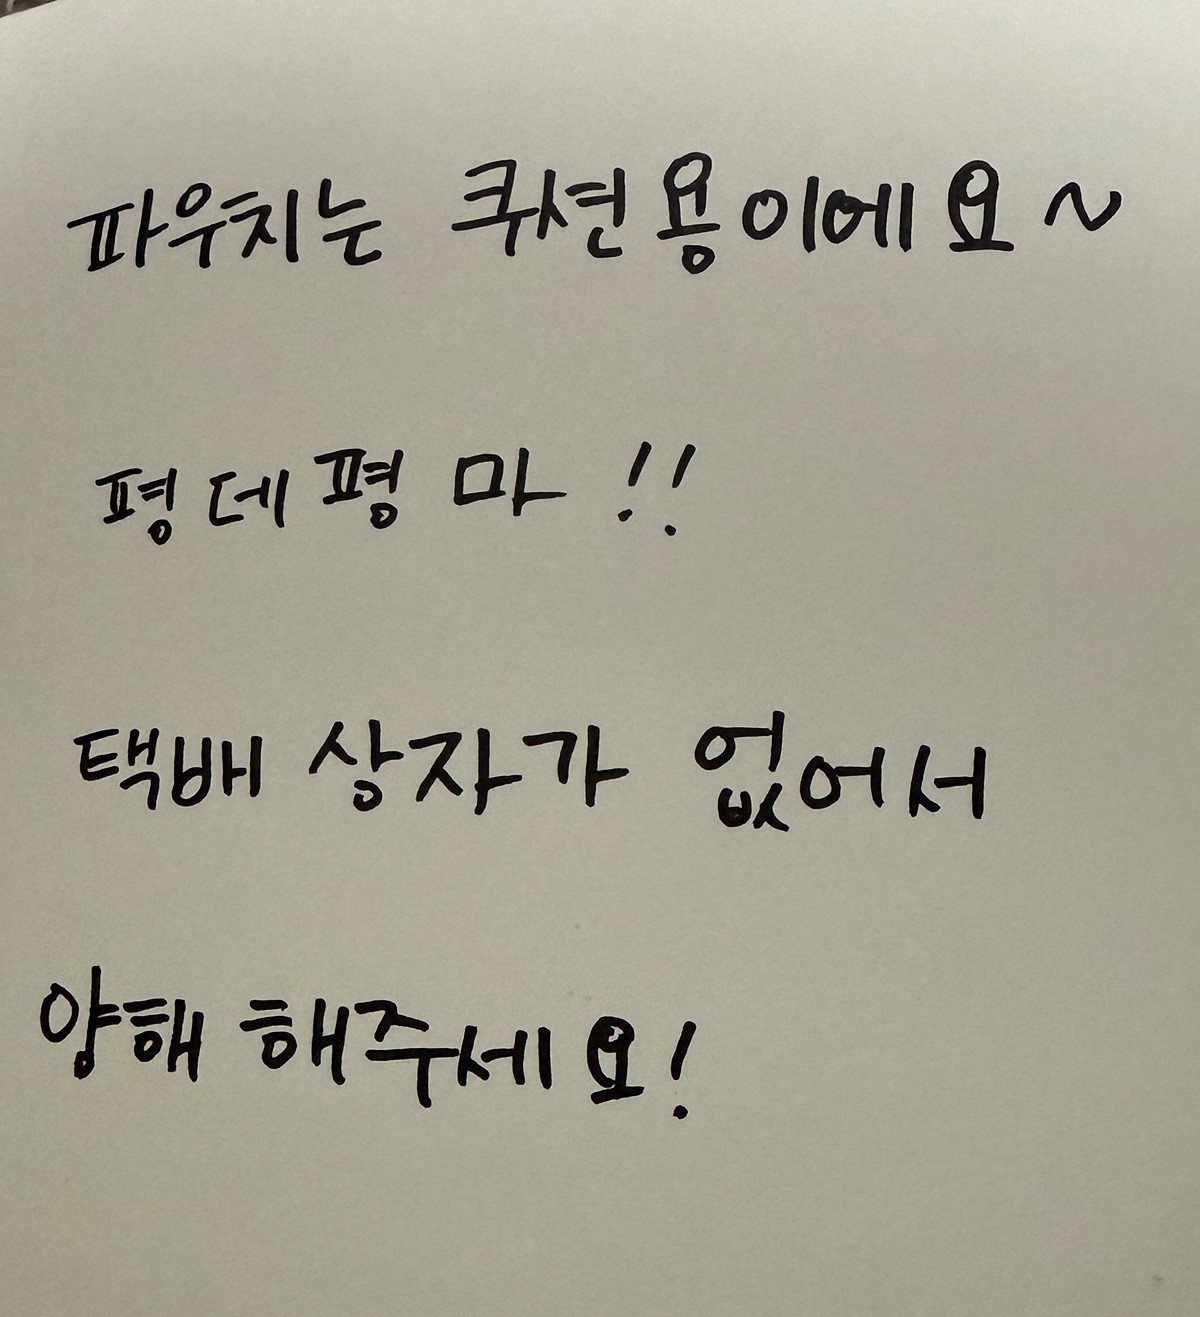 파우치는 쿠션용이에요~
평데평마!!
택배 상자가 없어서
양해 해주세요!